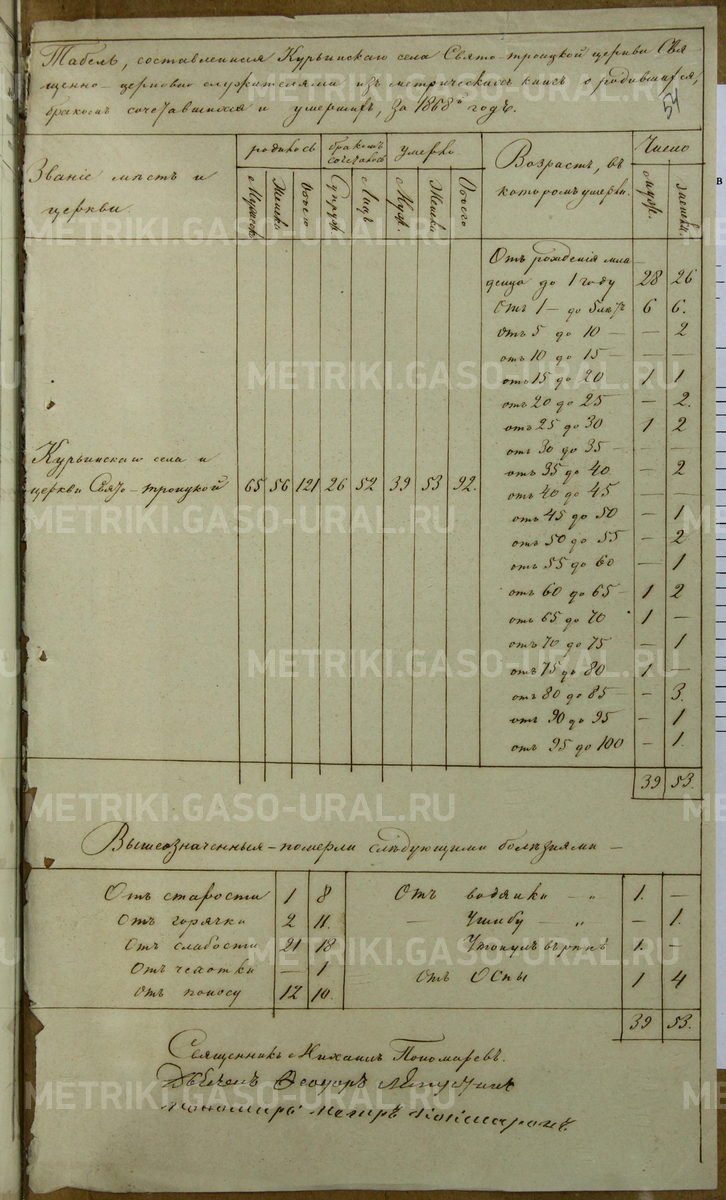 Табель, составленная Курьинскаго села Свято-троицкой церкви Свя
щенно-церковно служителями изъ метрическихъ книгъ о родившихся,
бракомъ сочетавшихся и умершихъ, за 1868й годъ.
54
Званіе мѣстъ и
церкви.
родилось
бракомъ
сочеталось
умерло.
Возрастъ, въ
которомъ умерли.
Число
Мужеск.
Женска
Обоего
Супруж.
Лицъ
Муж.
Женска
Обоего
мужс.
женска.
Отъ рожденія мла
денца до 1 году 28 26
отъ 1 — до 5 лѣтъ 6 6.
отъ 5 до 10 — — 2
отъ 10 до 15 — — —
отъ 15 до 20 1 1
отъ 20 до 25 — 2.
отъ 25 до 30 1 2
отъ 30 до 35 — — —
отъ 35 до 40 — 2
отъ 40 до 45 — —
отъ 45 до 50 — 1
отъ 50 до 55 — 2
отъ 55 до 60 — 1
отъ 60 до 65 — 1 2
отъ 65 до 70 1 —
отъ 70 до 75 — 1
отъ 75 до 80 1 —
отъ 80 до 85 — — 3.
отъ 90 до 95 — 1
отъ 95 до 100 — 1.
39 53.
Курьинскаго села и
церкви Свято-троицкой 65 56 121 26 52 39 53 92.
Вышеозначенныя-померли слѣдующими болѣзнями —
Отъ старости 1 8 Отъ водянки — „ 1. —
Отъ горячки 2 11. — Ушибу — „ — 1.
Отъ слабости 21 18 Утонулъ въ рѣкѣ 1. —
Отъ чеаотки — 1 Отъ Оспы 1 4
Отъ поносу 12 10.
39 53.
Священникъ Михаилъ Пономаревъ.
METRIKI.GASO-URAL.RU